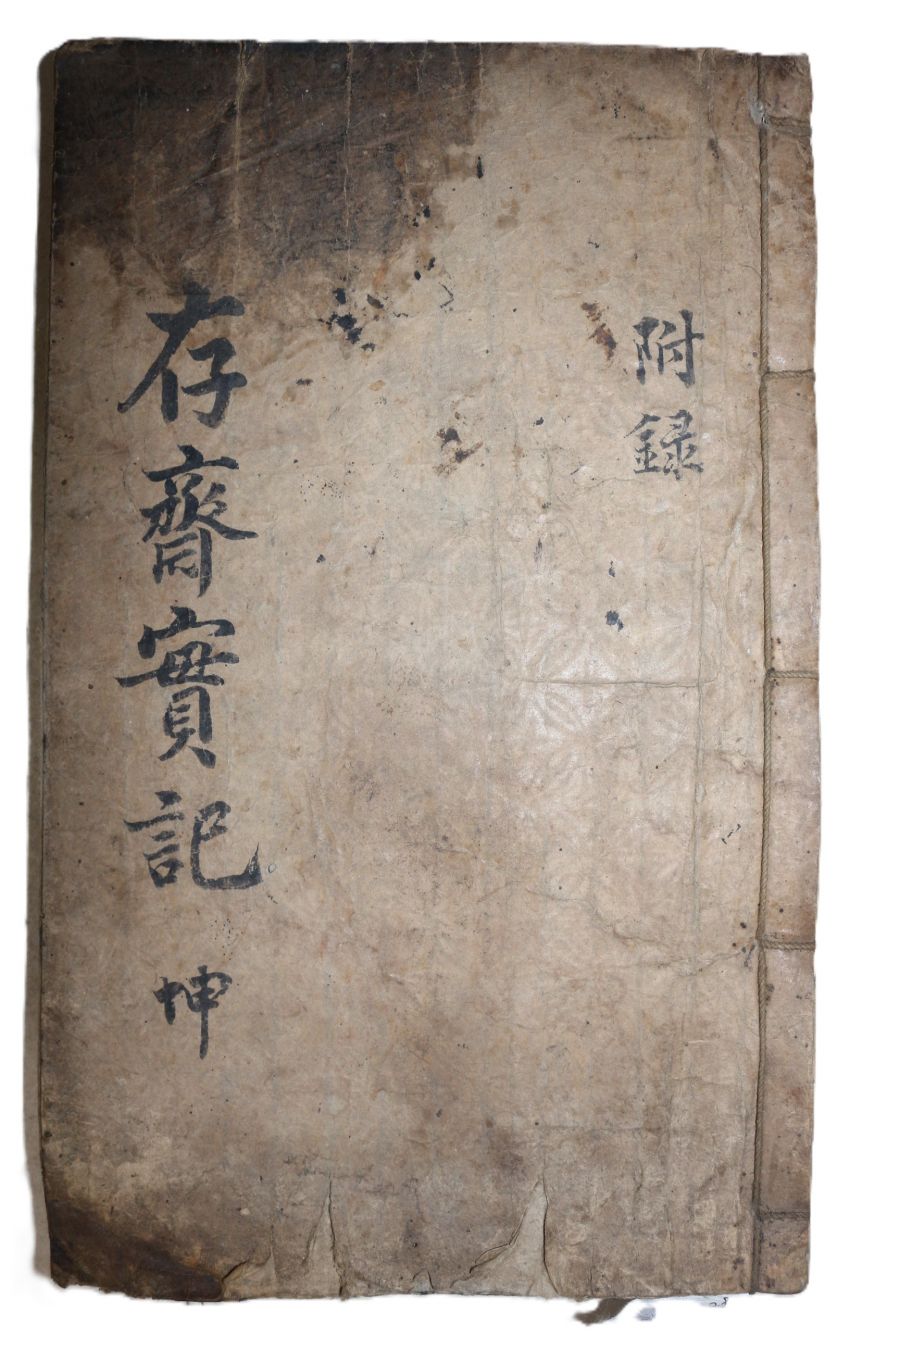 附錄
存齋實記 坤